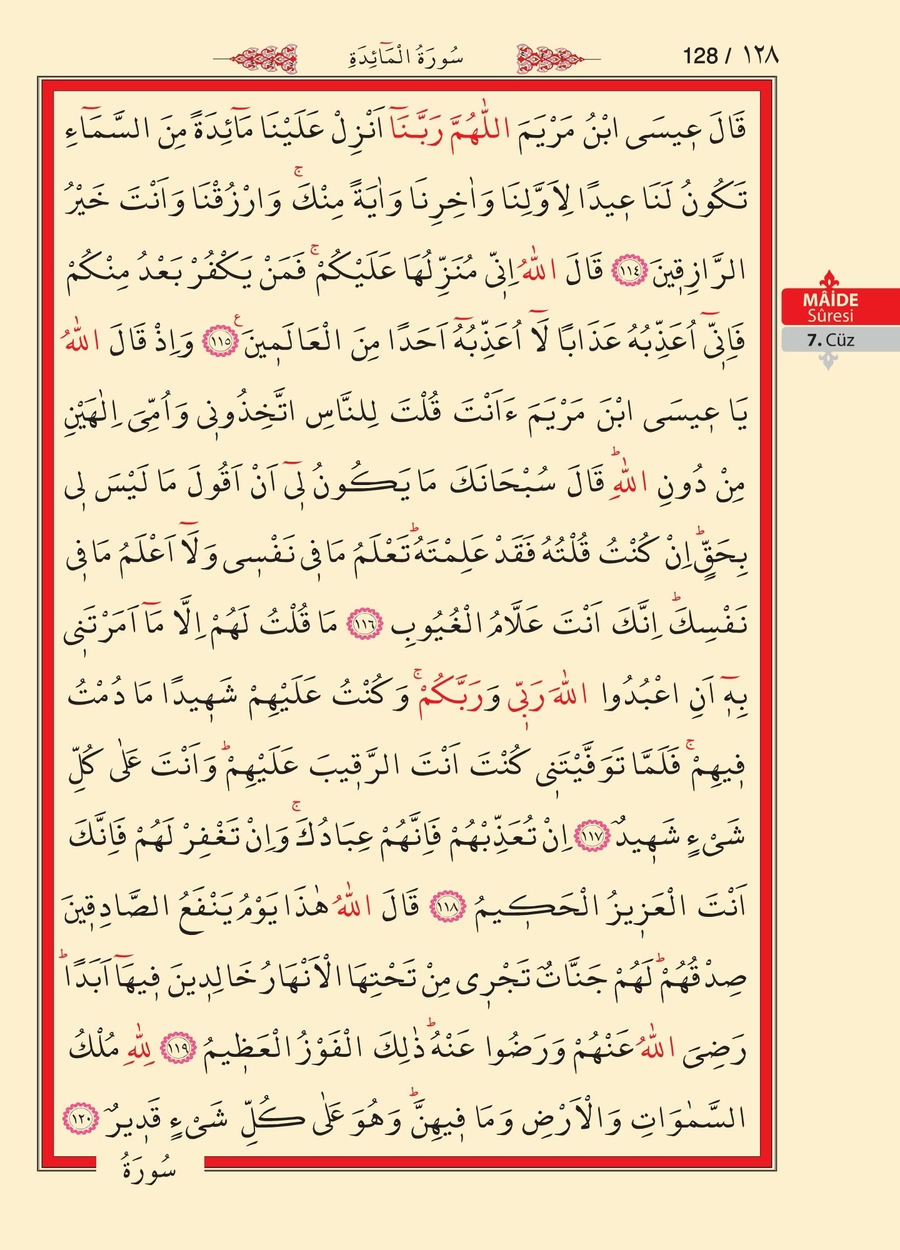 128 / ١٢٨
سُورَةُ الْمَٓائِدَةِ
قَالَ ع۪يسَى ابْنُ مَرْيَمَ اللّٰهُمَّ رَبَّنَٓا اَنْزِلْ عَلَيْنَا مَٓائِدَةً مِنَ السَّمَٓاءِ
تَكُونُ لَنَا ع۪يدًا لِاَوَّلِنَا وَاٰخِرِنَا وَاٰيَةً مِنْكَۚ وَارْزُقْنَا وَاَنْتَ خَيْرُ
الرَّازِق۪ينَ ﴿١١٤﴾ قَالَ اللّٰهُ اِنّ۪ي مُنَزِّلُهَا عَلَيْكُمْۚ فَمَنْ يَكْفُرْ بَعْدُ مِنْكُمْ
فَاِنّ۪ٓي اُعَذِّبُهُ عَذَابًا لَٓا اُعَذِّبُهُٓ اَحَدًا مِنَ الْعَالَم۪ينَ ﴿١١٥﴾ ع وَاِذْ قَالَ اللّٰهُ
يَا ع۪يسَى ابْنَ مَرْيَمَ ءَاَنْتَ قُلْتَ لِلنَّاسِ اتَّخِذُون۪ي وَاُمِّيَ اِلٰهَيْنِ
مِنْ دُونِ اللّٰهِۜ قَالَ سُبْحَانَكَ مَا يَكُونُ ل۪ٓي اَنْ اَقُولَ مَا لَيْسَ ل۪ي
بِحَقٍّۜ اِنْ كُنْتُ قُلْتُهُ فَقَدْ عَلِمْتَهُۜ تَعْلَمُ مَا ف۪ي نَفْس۪ي وَلَٓا اَعْلَمُ مَا ف۪ي
نَفْسِكَۜ اِنَّكَ اَنْتَ عَلَّامُ الْغُيُوبِ ﴿١١٦﴾ مَا قُلْتُ لَهُمْ اِلَّا مَٓا اَمَرْتَن۪ي
بِه۪ٓ اَنِ اعْبُدُوا اللّٰهَ رَبّ۪ي وَرَبَّكُمْۚ وَكُنْتُ عَلَيْهِمْ شَه۪يدًا مَا دُمْتُ
ف۪يهِمْۚ فَلَمَّا تَوَفَّيْتَن۪ي كُنْتَ اَنْتَ الرَّق۪يبَ عَلَيْهِمْۜ وَاَنْتَ عَلٰى كُلِّ
شَيْءٍ شَه۪يدٌ ﴿١١٧﴾ اِنْ تُعَذِّبْهُمْ فَاِنَّهُمْ عِبَادُكَۚ وَاِنْ تَغْفِرْ لَهُمْ فَاِنَّكَ
اَنْتَ الْعَز۪يزُ الْحَك۪يمُ ﴿١١٨﴾ قَالَ اللّٰهُ هٰذَا يَوْمُ يَنْفَعُ الصَّادِق۪ينَ
صِدْقُهُمْۜ لَهُمْ جَنَّاتٌ تَجْر۪ي مِنْ تَحْتِهَا الْاَنْهَارُ خَالِد۪ينَ ف۪يهَٓا اَبَدًاۜ
رَضِيَ اللّٰهُ عَنْهُمْ وَرَضُوا عَنْهُۜ ذٰلِكَ الْفَوْزُ الْعَظ۪يمُ ﴿١١٩﴾ لِلّٰهِ مُلْكُ
السَّمٰوَاتِ وَالْاَرْضِ وَمَا ف۪يهِنَّۜ وَهُوَ عَلٰى كُلِّ شَيْءٍ قَد۪يرٌ ﴿١٢٠﴾
سُورَةُ
MÂİDE
Sûresi
7. Cüz